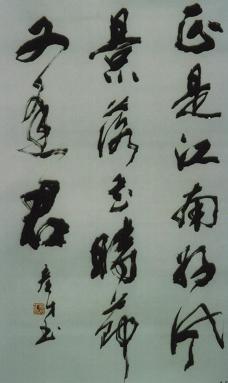 正是江南好风
景落花時節
又逢君